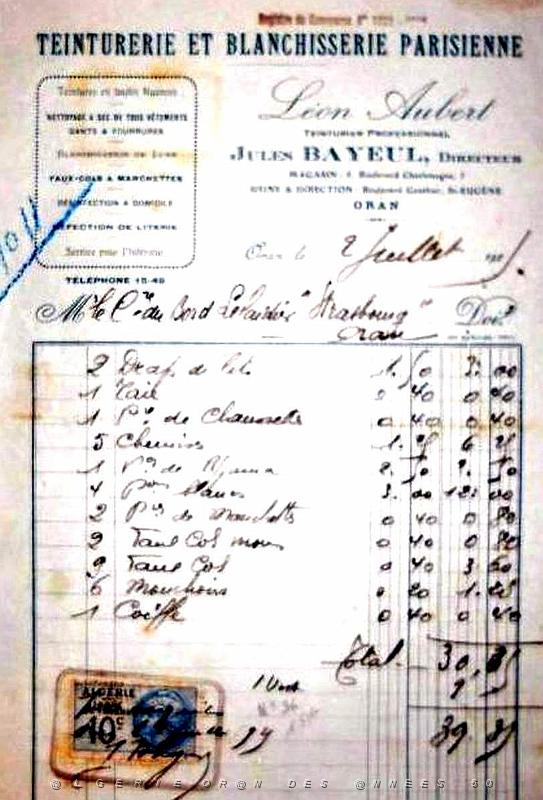 Registre de Commerce N°
TEINTURERIE ET BLANCHISSERIE PARISIENNE
Teintures en toutes Nuances
NETTOYAGE A SEC DE TOUS VÊTEMENTS
GANTS & FOURRURES
BLANCHISSERIE DE LUXE
FAUX-COLS & MANCHETTES
DÉSINFECTION A DOMICILE
RÉFECTION DE LITERIE
Service pour l'Intérieur
TÉLÉPHONE 15-40
Léon Aubert
TEINTURIER PROFESSIONNEL
JULES BAYEUL, DIRECTEUR
MAGASIN : Boulevard Charlemagne,
USINE & DIRECTION : Boulevard St-EUGÈNE
ORAN
Oran le 2 Juillet 192
Mr le du Bord "Strasbourg" Doit
Oran
2 Draps de lits 1.50 3.00
1 Taie 0 40 0 40
1 Pre de Chaussettes 0 40 0 40
5 Chemises 1.25 6 25
1 Pre de Pyjama 2.50 2.50
4 blancs 3.00 12.00
2 Pres de Manchettes 0 40 0 80
2 Faux Cols mous 0 40 0 80
9 Faux Cols 0 40 3 60
6 Mouchoirs 0 20 1.20
1 Coiffe 0 40 0 40
Total 30.35
9
39.35
ALGERIE
10c
@LGERIE OR@N DES @NNEES 50